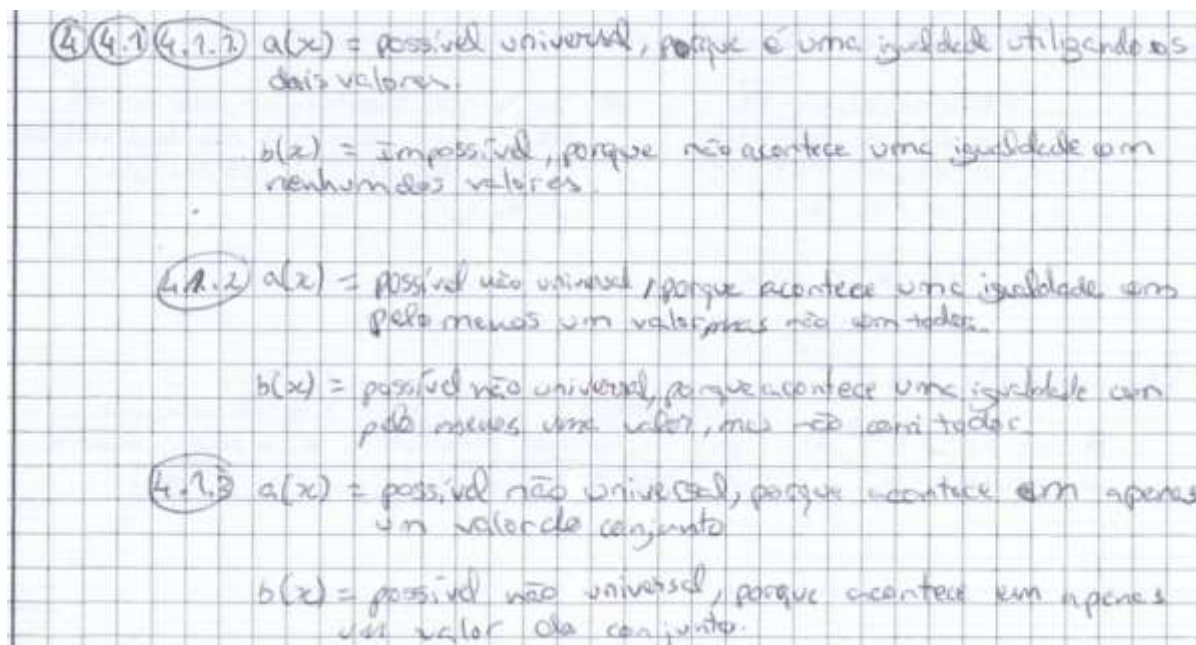 4 4.1 4.1.1 a(x) = possível universal, porque é uma igualdade utilizando os
dois valores.
b(x) = Impossível, porque não acontece uma igualdade com
nenhum dos valores
4.1.2 a(x) = possível não universal, porque acontece uma igualdade com
pelo menos um valor, mas não com todos.
b(x) = possível não universal, porque acontece uma igualdade com
pelo menos um valor, mas não com todos.
4.1.3 a(x) = possível não universal, porque acontece em apenas
um valor do conjunto
b(x) = possível não universal, porque acontece em apenas
um valor do conjunto.